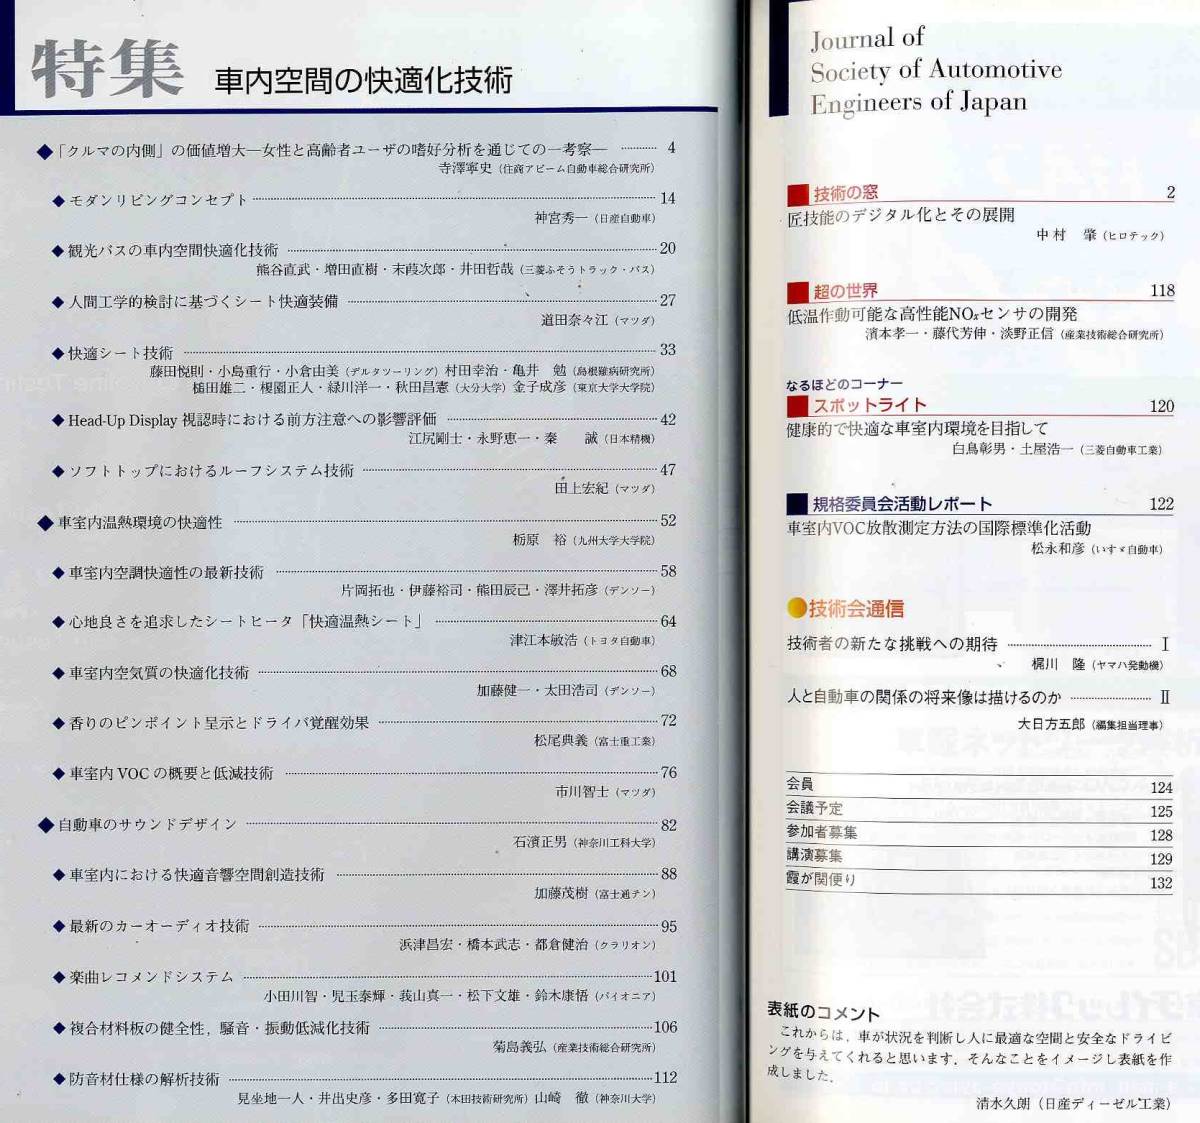 特集 車内空間の快適化技術
◆「クルマの内側」の価値増大―女性と高齢者ユーザの嗜好分析を通じての一考察― ………… 4
寺澤寧史（住商アビーム自動車総合研究所）
◆モダンリビングコンセプト ………… 14
神宮秀一（日産自動車）
◆観光バスの車内空間快適化技術 ………… 20
熊谷直武・増田直樹・末葭次郎・井田哲哉（三菱ふそうトラック・バス）
◆人間工学的検討に基づくシート快適装備 ………… 27
道田奈々江（マツダ）
◆快適シート技術 ………… 33
藤田悦則・小島重行・小倉由美（デルタツーリング）村田幸治・亀井　勉（島根難病研究所）
槌田雄二・榎園正人・緑川洋一・秋田昌憲（大分大学）金子成彦（東京大学大学院）
◆Head-Up Display 視認時における前方注意への影響評価 ………… 42
江尻剛士・永野恵一・秦　　誠（日本精機）
◆ソフトトップにおけるルーフシステム技術 ………… 47
田上宏紀（マツダ）
◆車室内温熱環境の快適性 ………… 52
栃原　裕（九州大学大学院）
◆車室内空調快適性の最新技術 ………… 58
片岡拓也・伊藤裕司・熊田辰己・澤井拓彦（デンソー）
◆心地良さを追求したシートヒータ「快適温熱シート」 ………… 64
津江本敏浩（トヨタ自動車）
◆車室内空気質の快適化技術 ………… 68
加藤健一・太田浩司（デンソー）
◆香りのピンポイント呈示とドライバ覚醒効果 ………… 72
松尾典義（富士重工業）
◆車室内 VOC の概要と低減技術 ………… 76
市川智士（マツダ）
◆自動車のサウンドデザイン ………… 82
石濱正男（神奈川工科大学）
◆車室内における快適音響空間創造技術 ………… 88
加藤茂樹（富士通テン）
◆最新のカーオーディオ技術 ………… 95
浜津昌宏・橋本武志・都倉健治（クラリオン）
◆楽曲レコメンドシステム ………… 101
小田川智・児玉泰輝・莪山真一・松下文雄・鈴木康悟（パイオニア）
◆複合材料板の健全性，騒音・振動低減化技術 ………… 106
菊島義弘（産業技術総合研究所）
◆防音材仕様の解析技術 ………… 112
見坐地一人・井出史彦・多田寛子（本田技術研究所）山崎　徹（神奈川大学）
Journal of
Society of Automotive
Engineers of Japan
技術の窓 2
匠技能のデジタル化とその展開
中村　肇（ヒロテック）
超の世界 118
低温作動可能な高性能NOxセンサの開発
濱本孝一・藤代芳伸・淡野正信（産業技術総合研究所）
なるほどのコーナー
スポットライト 120
健康的で快適な車室内環境を目指して
白鳥彰男・土屋浩一（三菱自動車工業）
規格委員会活動レポート 122
車室内VOC放散測定方法の国際標準化活動
松永和彦（いすゞ自動車）
技術会通信
技術者の新たな挑戦への期待 ………… Ⅰ
梶川　隆（ヤマハ発動機）
人と自動車の関係の将来像は描けるのか ………… Ⅱ
大日方五郎（編集担当理事）
会員 124
会議予定 125
参加者募集 128
講演募集 129
霞が関便り 132
表紙のコメント
これからは，車が状況を判断し人に最適な空間と安全なドライビ
ングを与えてくれると思います．そんなことをイメージし表紙を作
成しました．
清水久朗（日産ディーゼル工業）